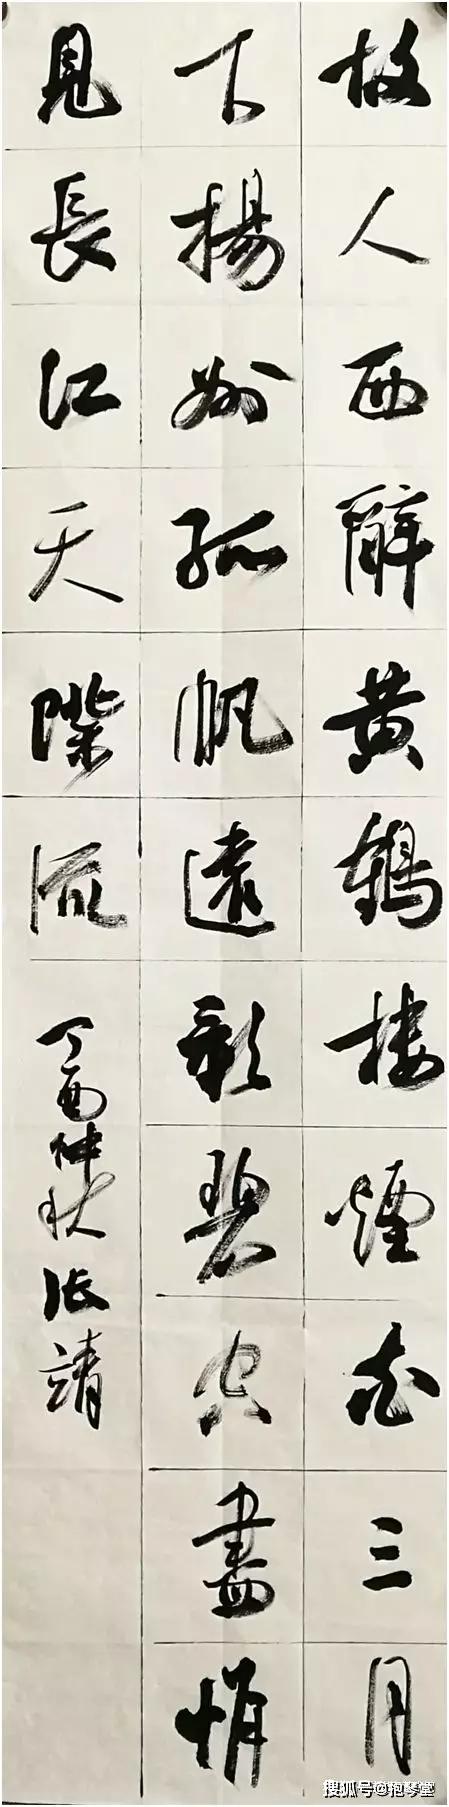 故人西辭黄鶴樓煙花三月
下揚州孤帆遠影碧空盡惟
見長江天際流
丁酉仲秋張靖
搜狐号@抱琴堂